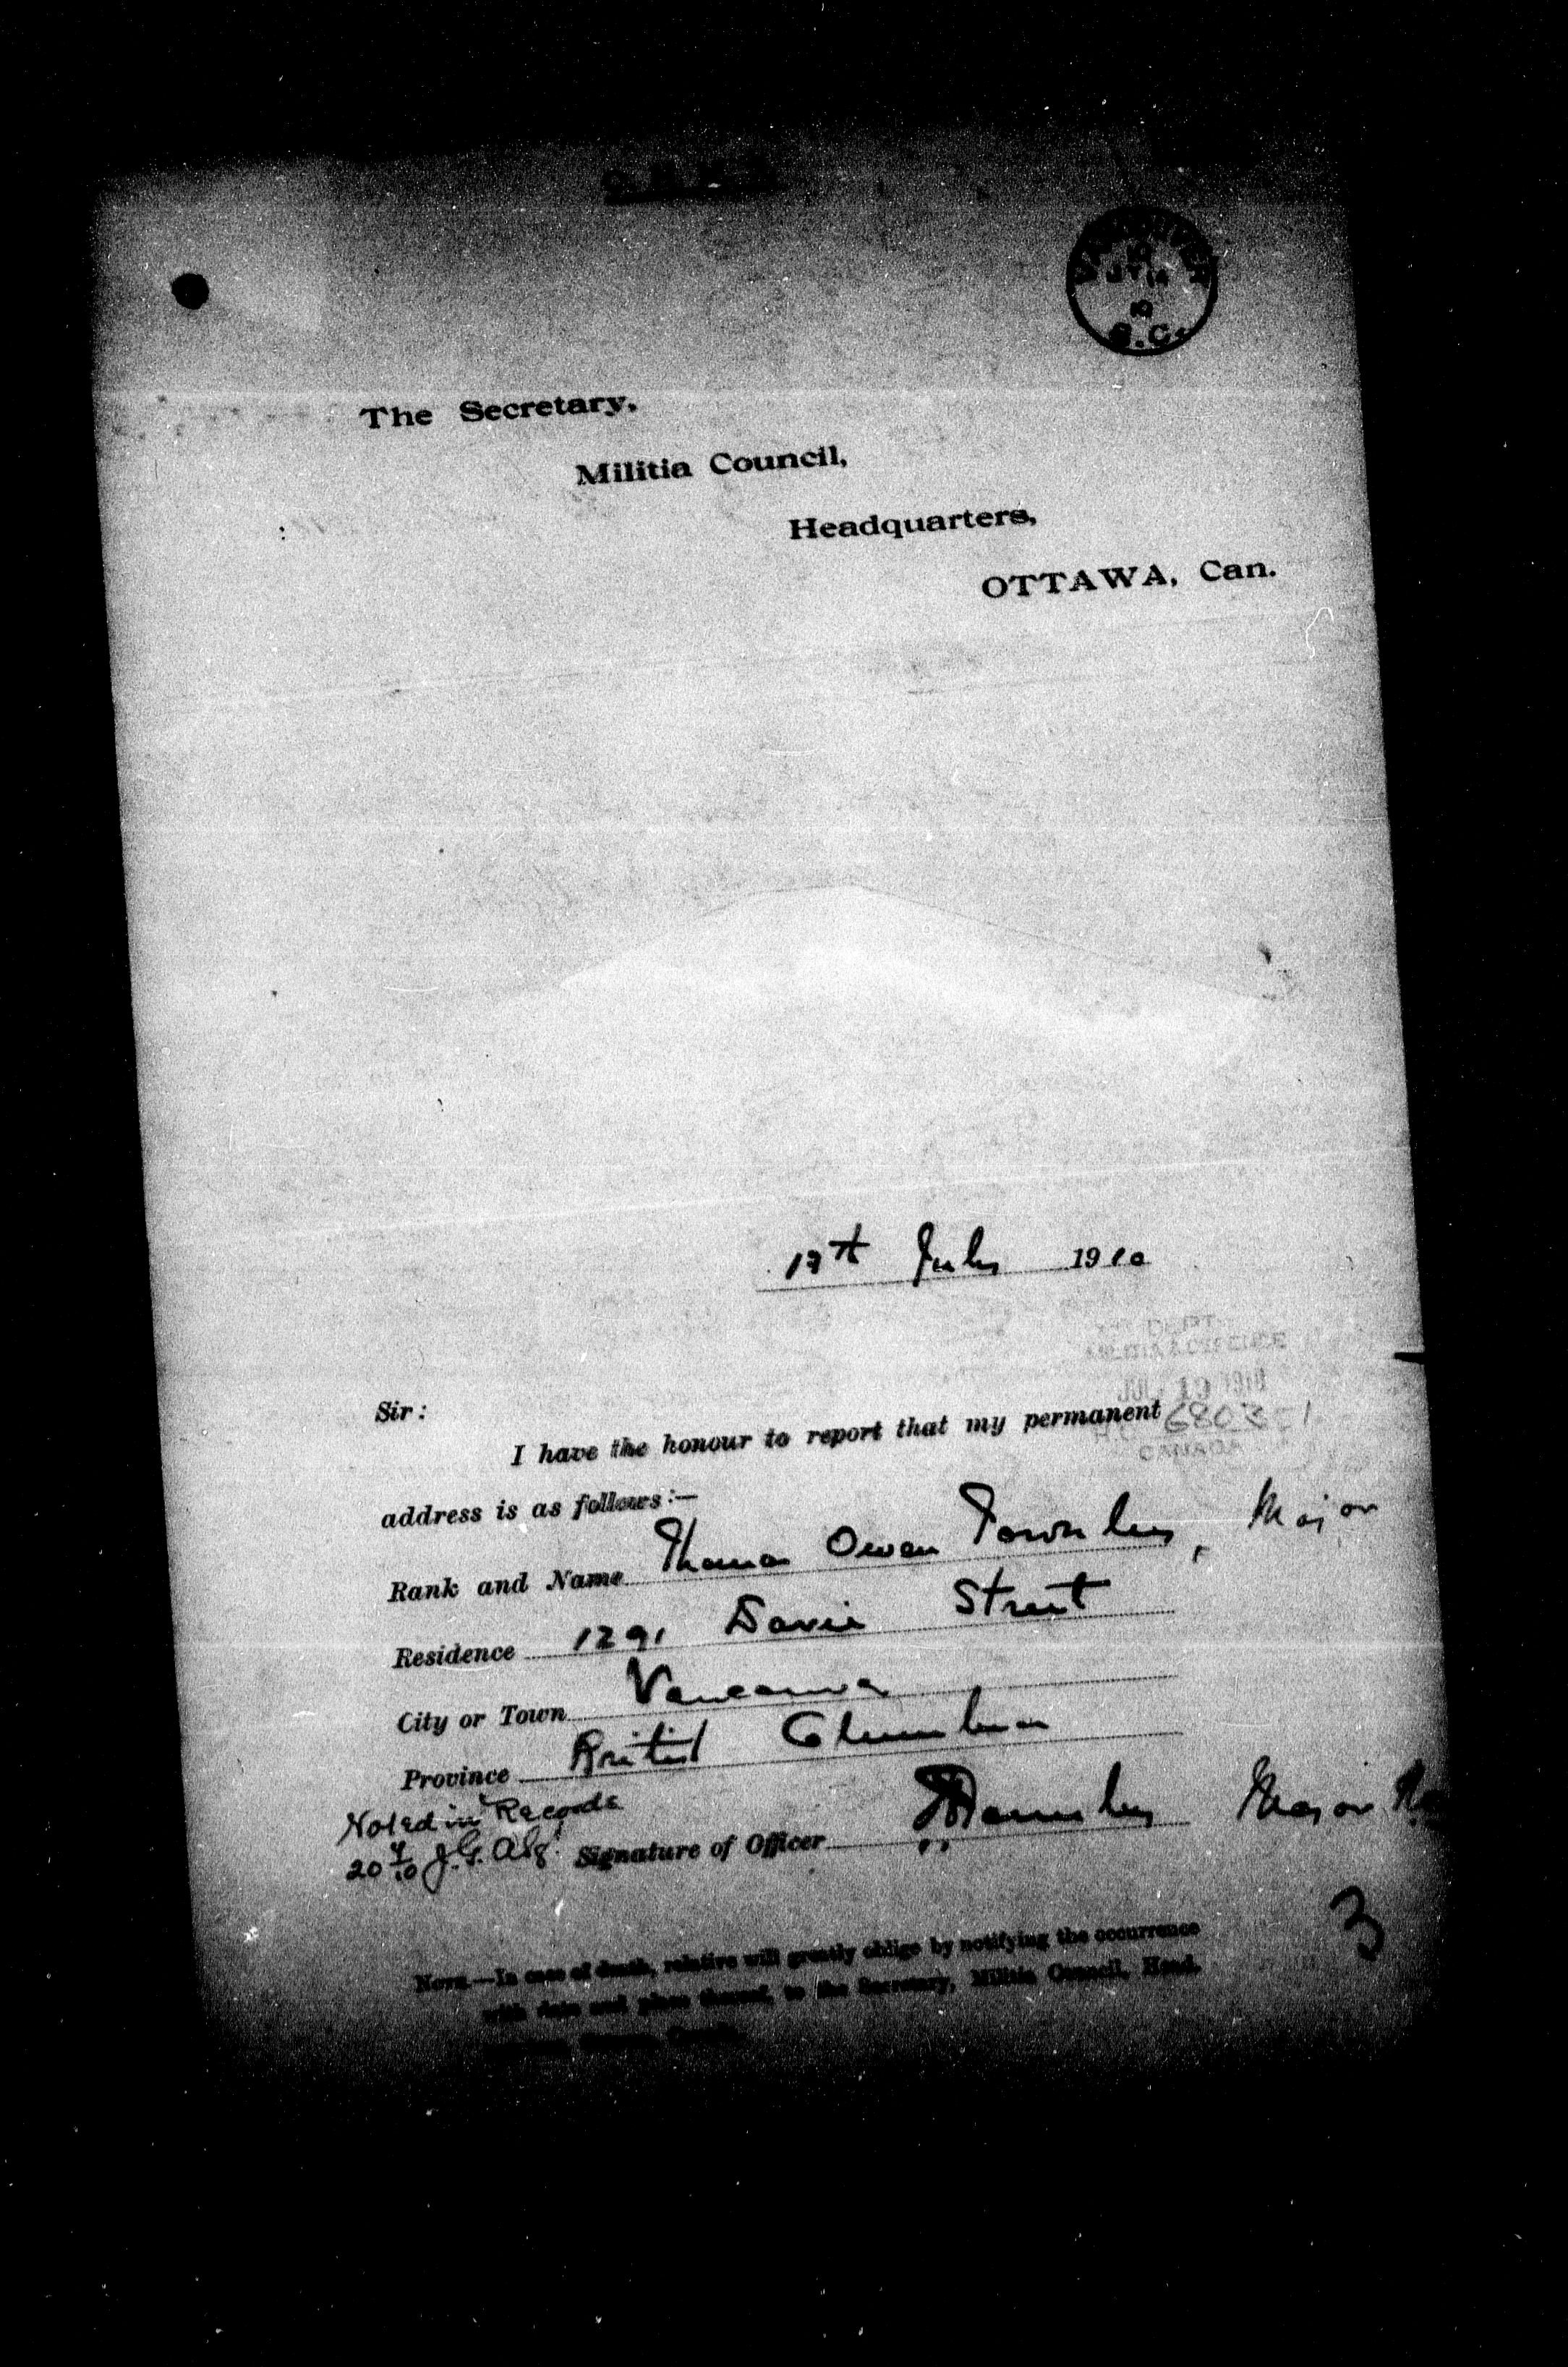 VANCOUVER
JY 14
10
B.C.
The Secretary,
Militia Council,
Headquarters,
OTTAWA, Can.
July 1910
DEPT.
MILITIA & DEFENCE
JUL 19 1910
Sir:
I have the honour to report that my permanent
H.Q. 6803-1
CANADA
address is as follows:—
Rank and Name Thomas Owen Townley, Major
Residence 1291 Davie Street
City or Town Vancouver
Province British Columbia
Noted in Records
20 7/10 J.G.
Signature of Officer Townley Major
3
NOTE.—In case of death, relative will greatly oblige by notifying the occurrence
with date and place thereof, to the Secretary, Militia Council, Head,